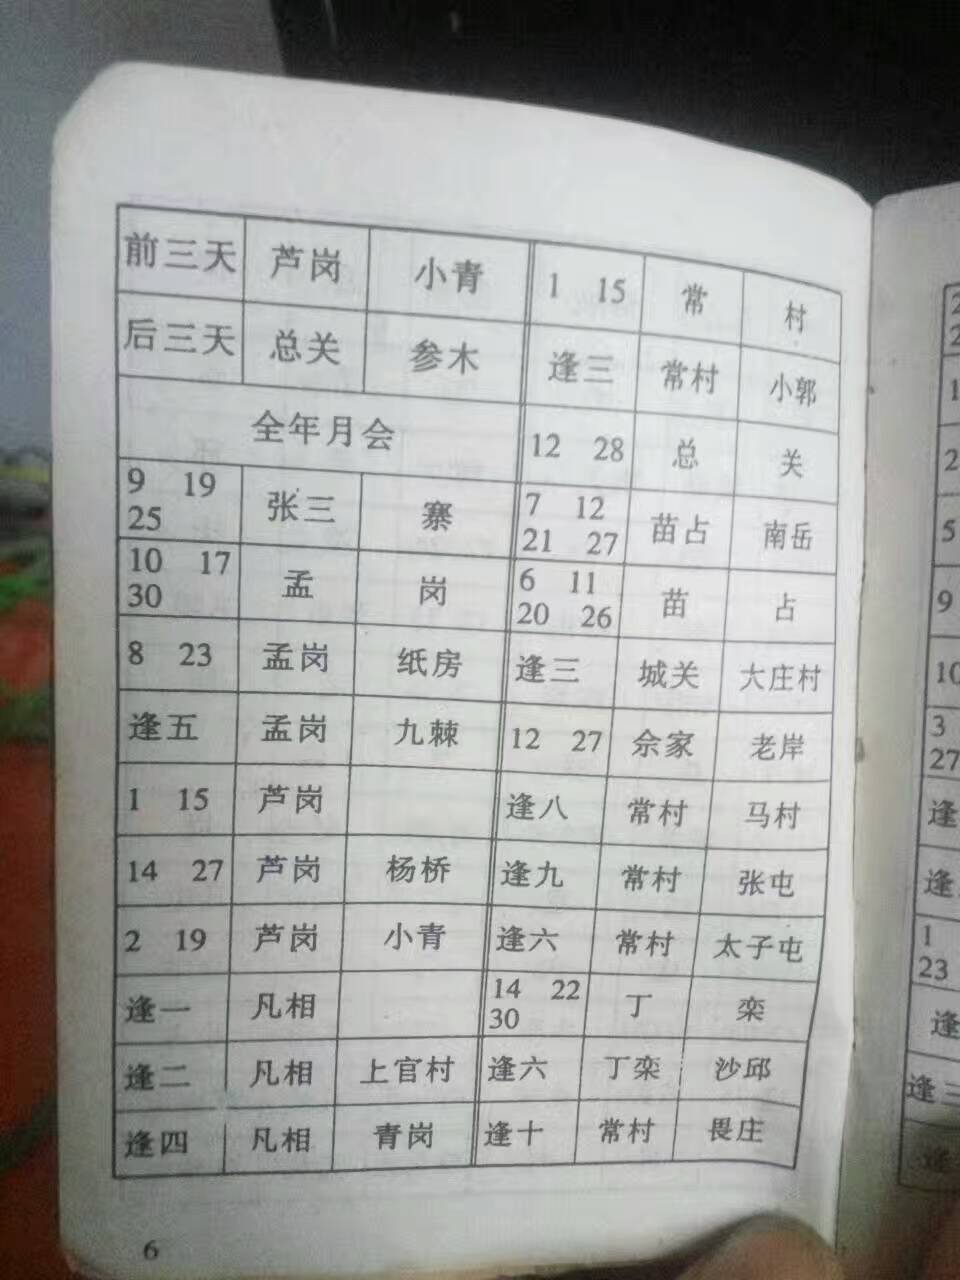 前三天 芦岗 小青
后三天 总关 参木
全年月会
9 19 25 张三 寨
10 17 30 孟 岗
8 23 孟岗 纸房
逢五 孟岗 九棘
1 15 芦岗
14 27 芦岗 杨桥
2 19 芦岗 小青
逢一 凡相
逢二 凡相 上官村
逢四 凡相 青岗
1 15 常 村
逢三 常村 小郭
12 28 总 关
7 12 21 27 苗占 南岳
6 11 20 26 苗 占
逢三 城关 大庄村
12 27 佘家 老岸
逢八 常村 马村
逢九 常村 张屯
逢六 常村 太子屯
14 22 30 丁 栾
逢六 丁栾 沙邱
逢十 常村 畏庄
6
1
2
5
9
10
3
27
逢
逢
1
23
逢
逢三
逢